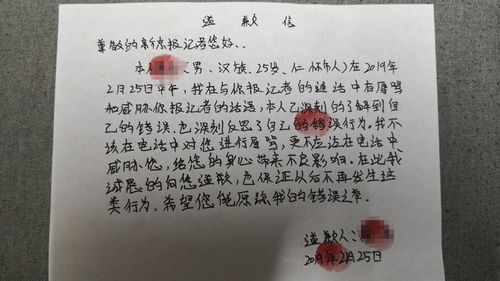 道歉信
尊敬的新京报记者您好、
本人 男、汉族、25岁、仁怀市人)在2019年
2月25日中午,我在与你报记者的通话中有辱骂
和威胁你报记者的话语,本人已深刻的了解到自
己的错误、也深刻反思了自己的错误行为。我不
该在电话中对您进行辱骂,更不应该在电话中
威胁您,给您的身心带来不良影响。在此我
诚恳的向您道歉,也保证以后不再发生这
类行为、希望您能原谅我的错误之举.
道歉人:
2019年2月25日